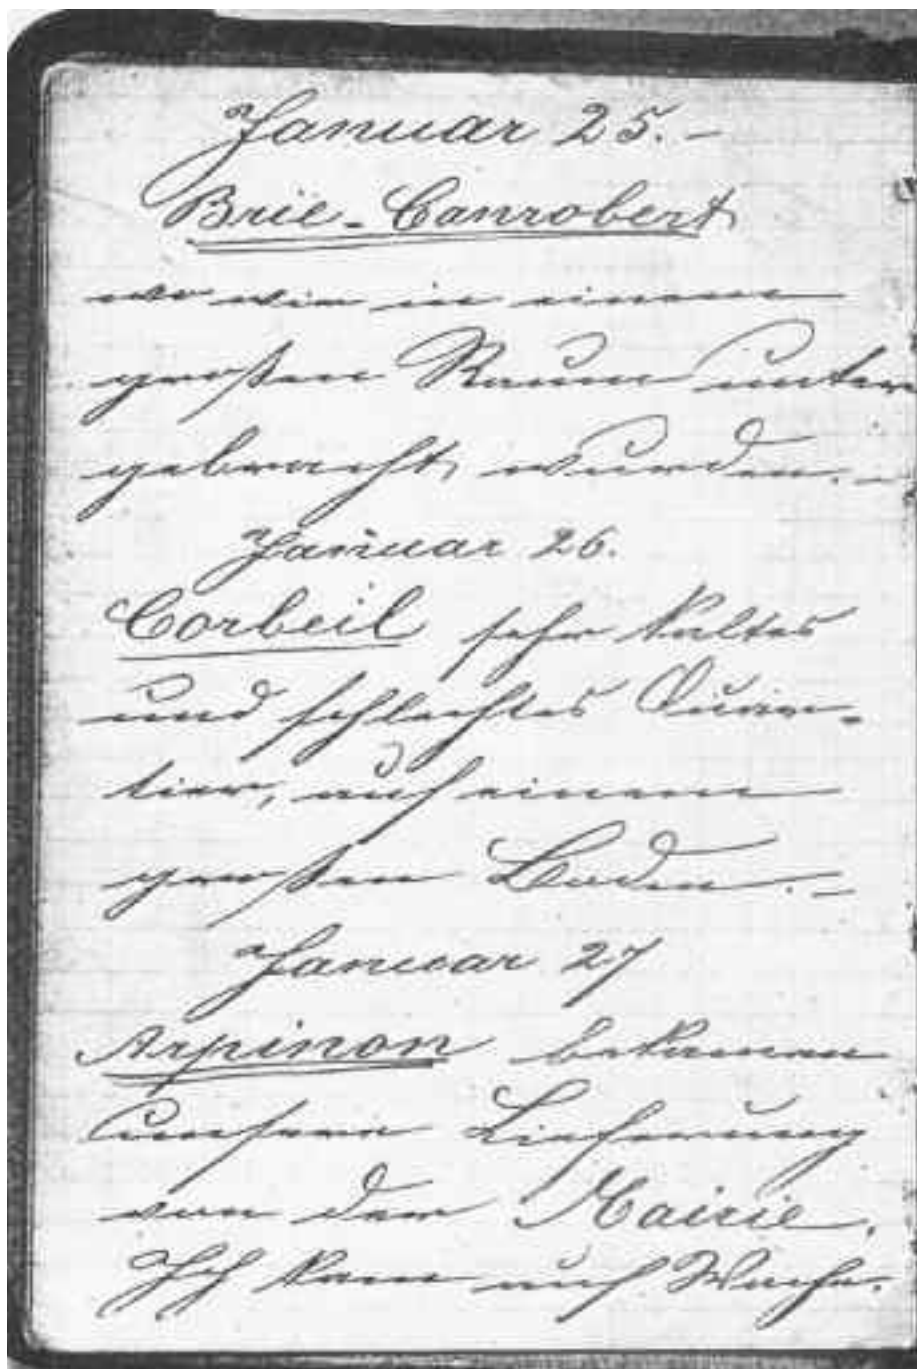 Januar 25. –
Brie-Canrobert
wo wir in einem
großen Raum unter
gebracht wurden. –
Januar 26.
Corbeil sehr kaltes
und schlechtes Quar-
tier, auf einem
großen Boden. –
Januar 27
Arpinon bekamen
unsere Lieferung
von der Mairie.
Ich kam auf Wache.